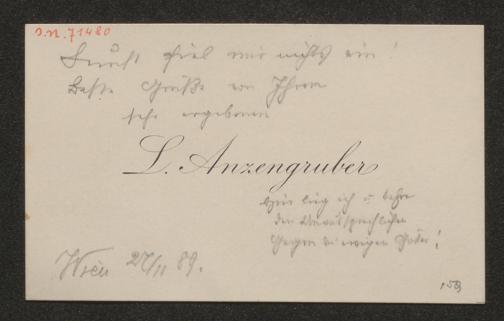 J.N. 71480
Sonst fiel mir nichts ein!
Beste Grüße von Ihrem
sehr ergebenen
L. Anzengruber
Hier lieg ich u.
den
Gegen die ewigen !
Wien 27/11 89.